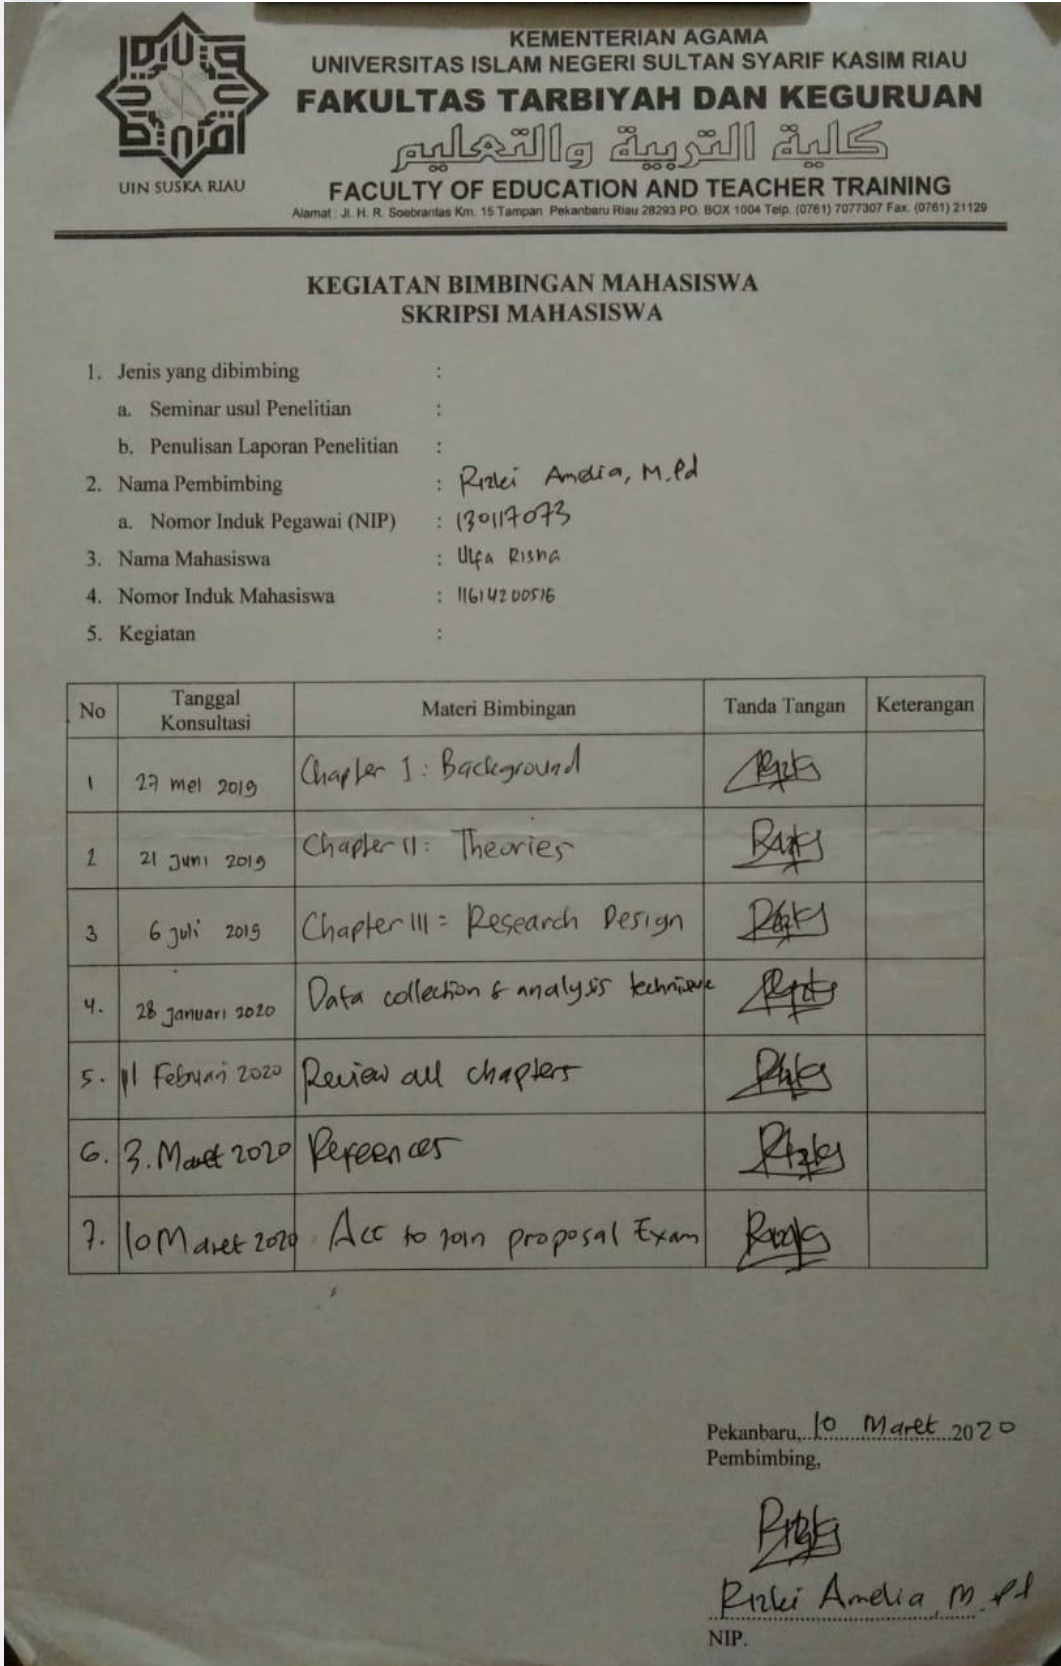 KEMENTERIAN AGAMA
UNIVERSITAS ISLAM NEGERI SULTAN SYARIF KASIM RIAU
FAKULTAS TARBIYAH DAN KEGURUAN
كلية التربية والتعليم
UIN SUSKA RIAU
FACULTY OF EDUCATION AND TEACHER TRAINING
Alamat : Jl. H. R. Soebrantas Km. 15 Tampan Pekanbaru Riau 28293 PO. BOX 1004 Telp. (0761) 7077307 Fax. (0761) 21129
KEGIATAN BIMBINGAN MAHASISWA
SKRIPSI MAHASISWA
1. Jenis yang dibimbing :
a. Seminar usul Penelitian :
b. Penulisan Laporan Penelitian :
2. Nama Pembimbing : Rizki Amelia, M.Pd
a. Nomor Induk Pegawai (NIP) : 130117073
3. Nama Mahasiswa : Ulfa Risna
4. Nomor Induk Mahasiswa : 11614200516
5. Kegiatan :
No Tanggal Konsultasi Materi Bimbingan Tanda Tangan Keterangan
1 27 mei 2019 Chapter I : Background
2 21 Juni 2019 Chapter II : Theories
3 6 Juli 2019 Chapter III : Research Design
4. 28 Januari 2020 Data collection & analysis technique
5. 11 Februari 2020 Review all chapters
6. 3. Maret 2020 Refeences
7. 10 Maret 2020 Acc to join proposal Exam
Pekanbaru, 10 Maret 2020
Pembimbing,
Rizki Amelia, M.Pd
NIP.